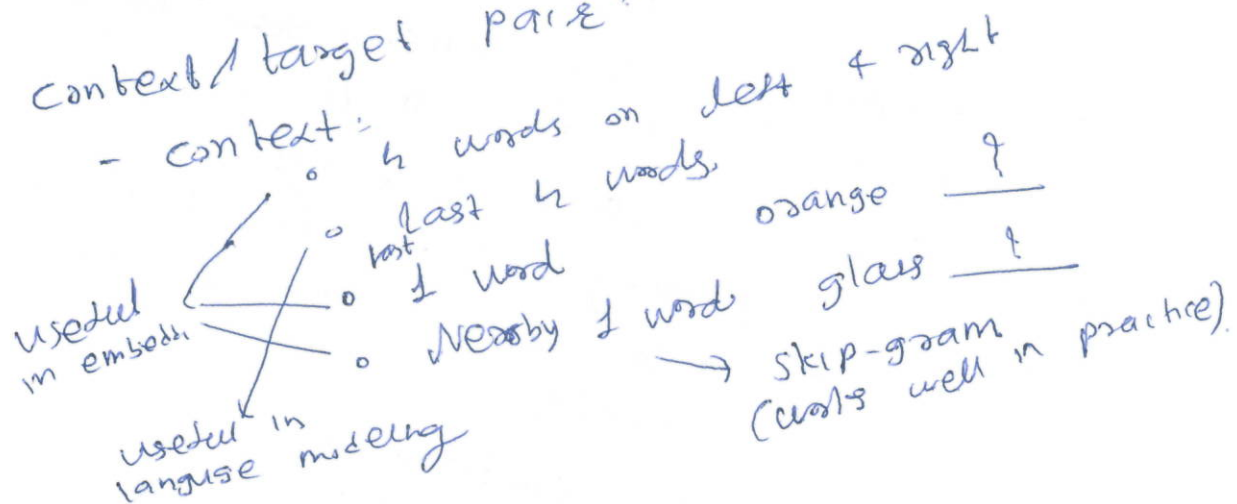 context/target pair
- context:
4 words on left & right
last 4 words
last 1 word orange ?
Nearby 1 word glass ?
→ skip-gram
(works well in practice)
useful
in embedd.
useful in
languge modeling